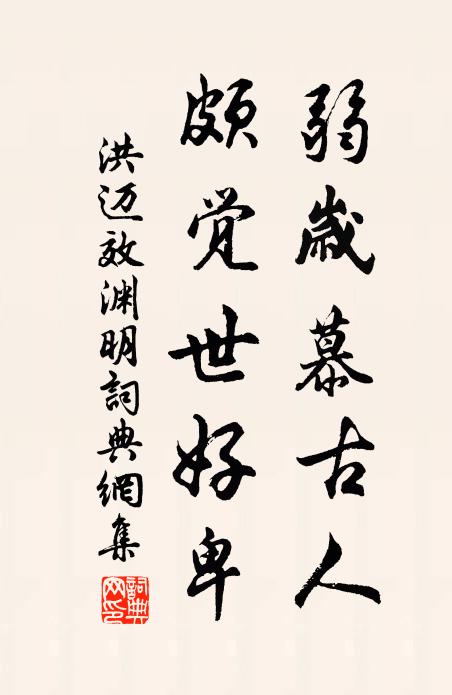 弱歲慕古人
頗覚世好卑
洪迈效渊明詞典網集
詞典网印